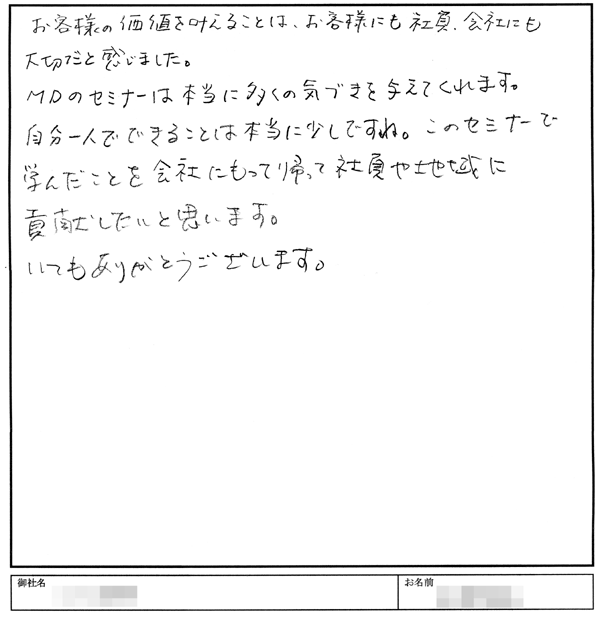 お客様の価値を叶えることは、お客様にも社員、会社にも
大切だと感じました。
MDのセミナーは本当に多くの気づきを与えてくれます。
自分一人でできることは本当に少しですね。このセミナーで
学んだことを会社にもって帰って社員や地域に
貢献したいと思います。
いつもありがとうございます。
御社名
お名前